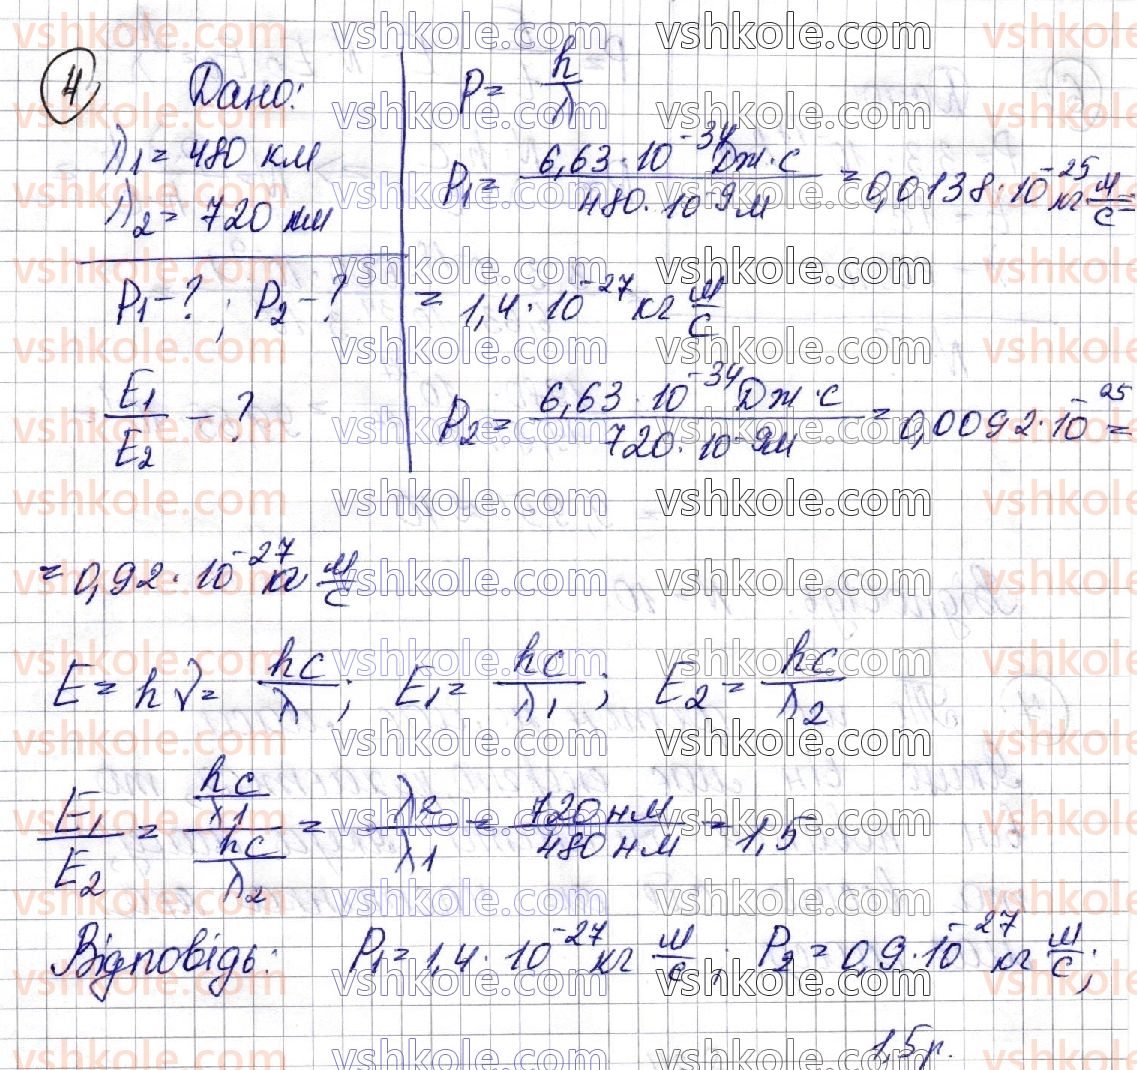 4
Дано:
λ1 = 480 км
λ2 = 720 нм
P1 - ? ; P2 - ?
E1/E2 - ?
P = h/λ
P1 = 6,63·10^-34 Дж·с / 480·10^-9 м = 0,0138·10^-25 кг м/с =
= 1,4·10^-27 кг м/с
P2 = 6,63·10^-34 Дж·с / 720·10^-9 м = 0,0092·10^-25 =
= 0,92·10^-27 кг м/с
E = hν = hc/λ; E1 = hc/λ1; E2 = hc/λ2
E1/E2 = (hc/λ1)/(hc/λ2) = λ2/λ1 = 720 нм/480 нм = 1,5
Відповідь: P1 = 1,4·10^-27 кг м/с; P2 = 0,9·10^-27 кг м/с;
1,5 р.
vshkole.com